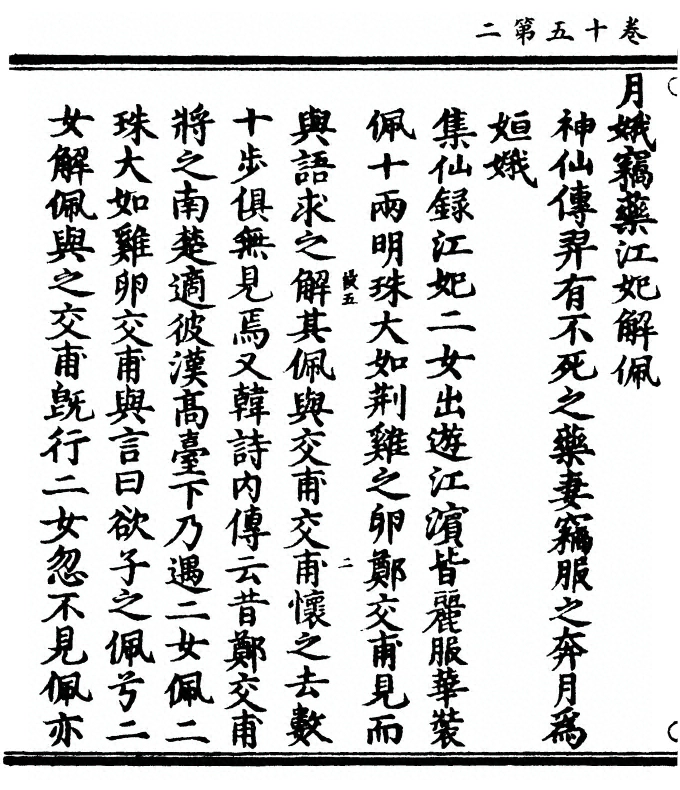 卷十五第二
月娥竊藥江妃解佩
神仙傳羿有不死之藥妻竊服之奔月爲
姮娥
集仙錄江妃二女出遊江濱皆麗服華裝
佩十兩明珠大如荆雞之卵鄭交甫見而
與語求之解其佩與交甫交甫懷之去數
改五
二
十步俱無見焉又韓詩内傳云昔鄭交甫
將之南楚適彼漢高臺下乃遇二女佩二
珠大如雞卵交甫與言曰欲子之佩兮二
女解佩與之交甫旣行二女忽不見佩亦